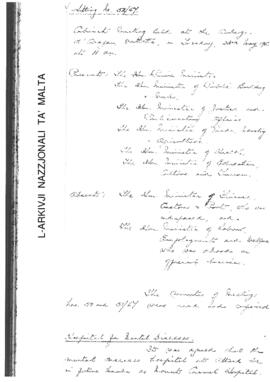 L-ARKIVJI NAZZJONALI TA' MALTA
Sitting No. 58/67
Cabinet meeting held at the Auberge
d'Aragon Valletta, on Tuesday, May
at 11 am.
Present: The Hon Prime Minister
The Hon Minister of Public Building
& Works,
The Hon Minister of Justice and
Parliamentary Affairs
The Hon Minister of Trade Industry
& Agriculture
The Hon Minister of Health.
The Hon Minister of Education,
Culture and Tourism.
Absent: The Hon Minister of Finance
Customs & Port, who was
indisposed, and,
The Hon Minister of Labour
Employment and Welfare
who was abroad on
official business.
The minutes of meetings
Nos. and 57/67 were read and confirmed
Hospital for Mental Diseases.
It was agreed that the
mental diseases hospital at Attard be
in future known as Mount Carmel Hospital.